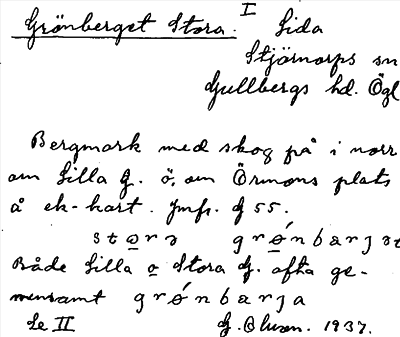 Grönberget Stora. I Lida
Stjärnorps sn
Gullbergs hd. Ögl
Bergmark med skog på i norr
om Lilla G. ö. om Örmons plats
å ek-kart. Jmfr. G 55.
stora grǿnbarjət
Både Lilla o Stora G. ofta ge-
mensamt grǿnbarja
Se II G. Olson. 1937.